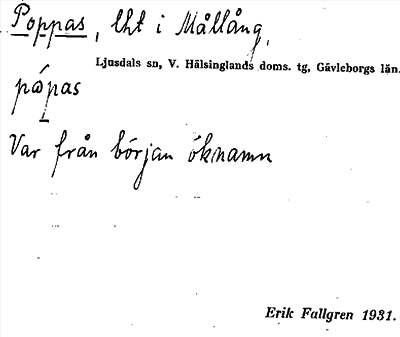 Poppas, lht i Mållång,
Ljusdals sn, V. Hälsinglands doms. tg, Gävleborgs län.
Var från början öknamn
Erik Fallgren 1931.